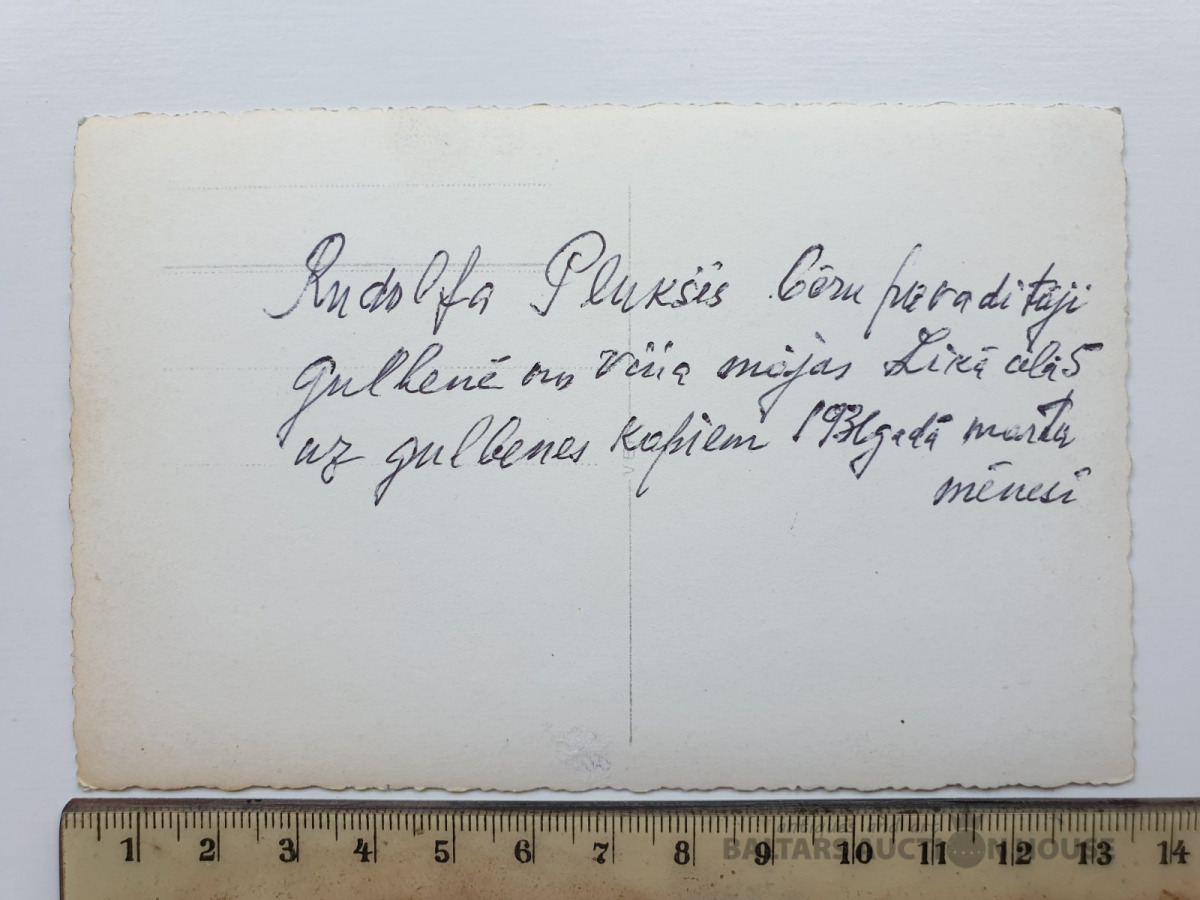 Rudolfa Plukšis bēru pavadītāji
gulbenē no viņa mājas Likā ielā 5
uz gulbenes kapiem 1931 gadā marta
mēnesī
1 2 3 4 5 6 7 8 9 10 11 12 13 14
antiques and art
BALTARS AUCTION HOUSE